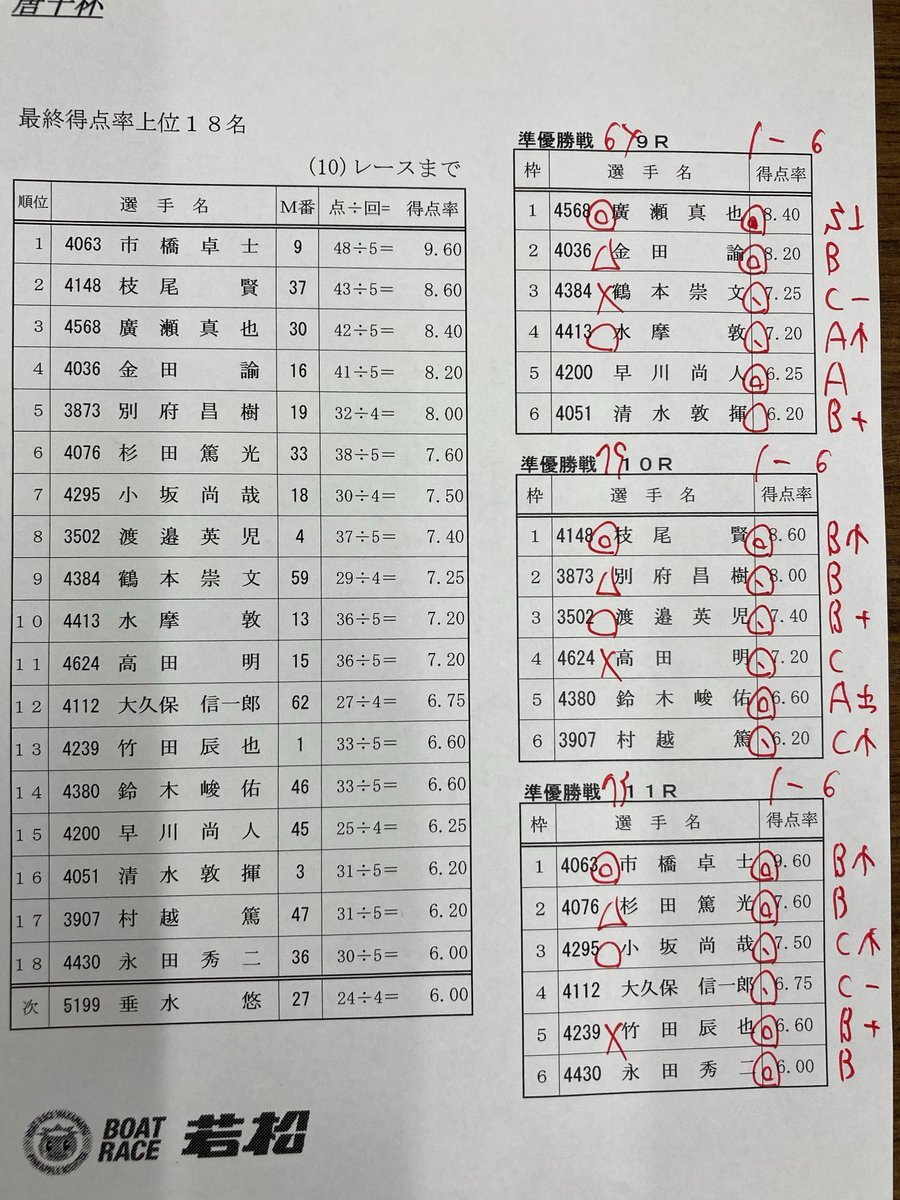 唐十杯
最終得点率上位１８名
(10)レースまで
順位 選手名 M番 点÷回= 得点率
1 4063 市橋卓士 9 48÷5= 9.60
2 4148 枝尾賢 37 43÷5= 8.60
3 4568 廣瀬真也 30 42÷5= 8.40
4 4036 金田諭 16 41÷5= 8.20
5 3873 別府昌樹 19 32÷4= 8.00
6 4076 杉田篤光 33 38÷5= 7.60
7 4295 小坂尚哉 18 30÷4= 7.50
8 3502 渡邉英児 4 37÷5= 7.40
9 4384 鶴本崇文 59 29÷4= 7.25
10 4413 水摩敦 13 36÷5= 7.20
11 4624 高田明 15 36÷5= 7.20
12 4112 大久保信一郎 62 27÷4= 6.75
13 4239 竹田辰也 1 33÷5= 6.60
14 4380 鈴木峻佑 46 33÷5= 6.60
15 4200 早川尚人 45 25÷4= 6.25
16 4051 清水敦揮 3 31÷5= 6.20
17 3907 村越篤 47 31÷5= 6.20
18 4430 永田秀二 36 30÷5= 6.00
次 5199 垂水悠 27 24÷4= 6.00
準優勝戦 9R 1-6
枠 選手名 得点率
1 4568 ◎ 廣瀬真也 8.40
2 4036 △ 金田諭 ◎ 8.20 B
3 4384 × 鶴本崇文 7.25 C-
4 4413 ○ 水摩敦 7.20 A↑
5 4200 早川尚人 6.25 A
6 4051 清水敦揮 ○ 6.20 B+
準優勝戦 10R 1-6
枠 選手名 得点率
1 4148 ◎ 枝尾賢 8.60 B↑
2 3873 △ 別府昌樹 8.00 B
3 3502 ○ 渡邉英児 7.40 B+
4 4624 × 高田明 7.20 C
5 4380 鈴木峻佑 ◎ 6.60 A
6 3907 村越篤 6.20 C↑
準優勝戦 11R 1-6
枠 選手名 得点率
1 4063 ◎ 市橋卓士 9.60 B↑
2 4076 △ 杉田篤光 7.60 B
3 4295 ○ 小坂尚哉 7.50 C↑
4 4112 大久保信一郎 6.75 C-
5 4239 × 竹田辰也 ◎ 6.60 B+
6 4430 永田秀二 ◎ 6.00 B
BOAT RACE 若松